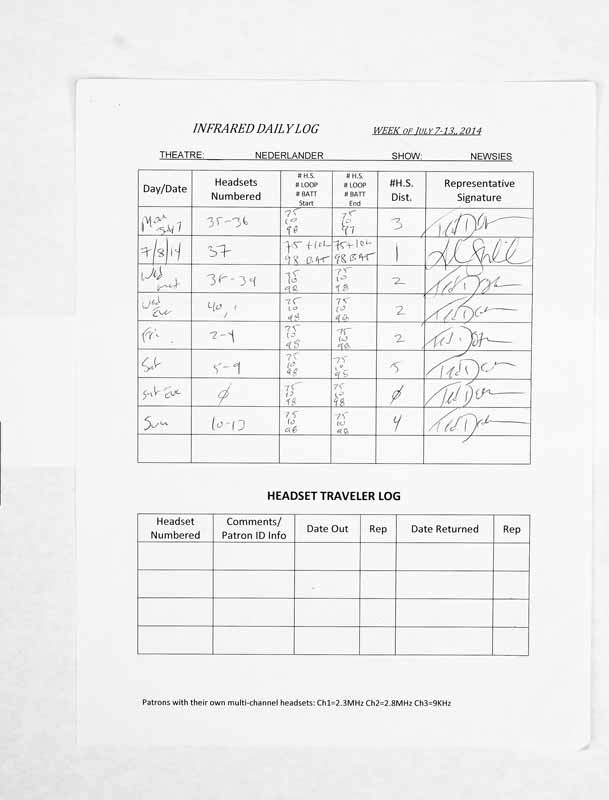 INFRARED DAILY LOG WEEK OF JULY 7-13,, 2014
THEATRE: NEDERLANDER SHOW: NEWSIES
Day/Date Headsets Numbered # H.S. # LOOP # BATT Start # H.S. # LOOP # BATT End #H.S. Dist. Representative Signature
Mon July 7 35-36 75 10 98 75 10 97 3
7/8/14 37 75 +10L 98 BAT 75+10L 98 BAT 1
Wed mat 38-39 75 10 98 75 10 98 2
Wed Eve 40, 1 75 10 98 75 10 98 2
Fri. 2-4 75 10 98 75 10 98 2
Sat 5-9 75 10 98 75 10 98 5
Sat Eve Ø 75 10 98 75 10 98 Ø
Sun 10-13 75 10 98 75 10 98 4
HEADSET TRAVELER LOG
Headset Numbered Comments/ Patron ID Info Date Out Rep Date Returned Rep
Patrons with their own multi-channel headsets: Ch1=2.3MHz Ch2=2.8MHz Ch3=9KHz